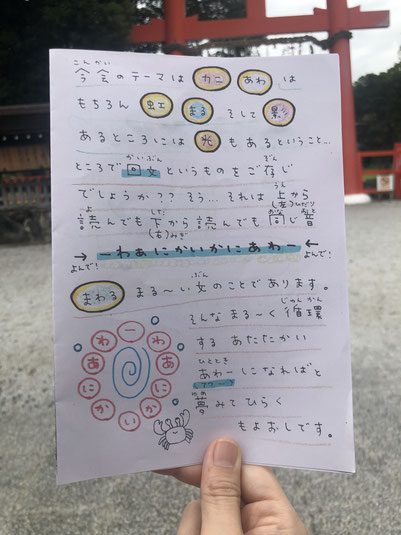 こんかい
今会のテーマは カニ あわ は
もちろん 虹 まる そして 影
あるところには 光 もあるということ…
かいぶん ぞん
ところで回文というものをご存じ
うえ
でしょうか?? そう… それは上から
よ した (左)ひだり おな おと
読んでも下から読んでも同じ音
(右)みぎ
→ーわあにかいかにあわー←
よんで! よんで!
ぶん
まわる まる〜い文のことであります。
じゅんかん
そんなまる〜く循環
するあたたかい
ひととき
あわーになればと
ゆめ
夢みてひらく
もよおしです。
ーわあにかいかにあわ